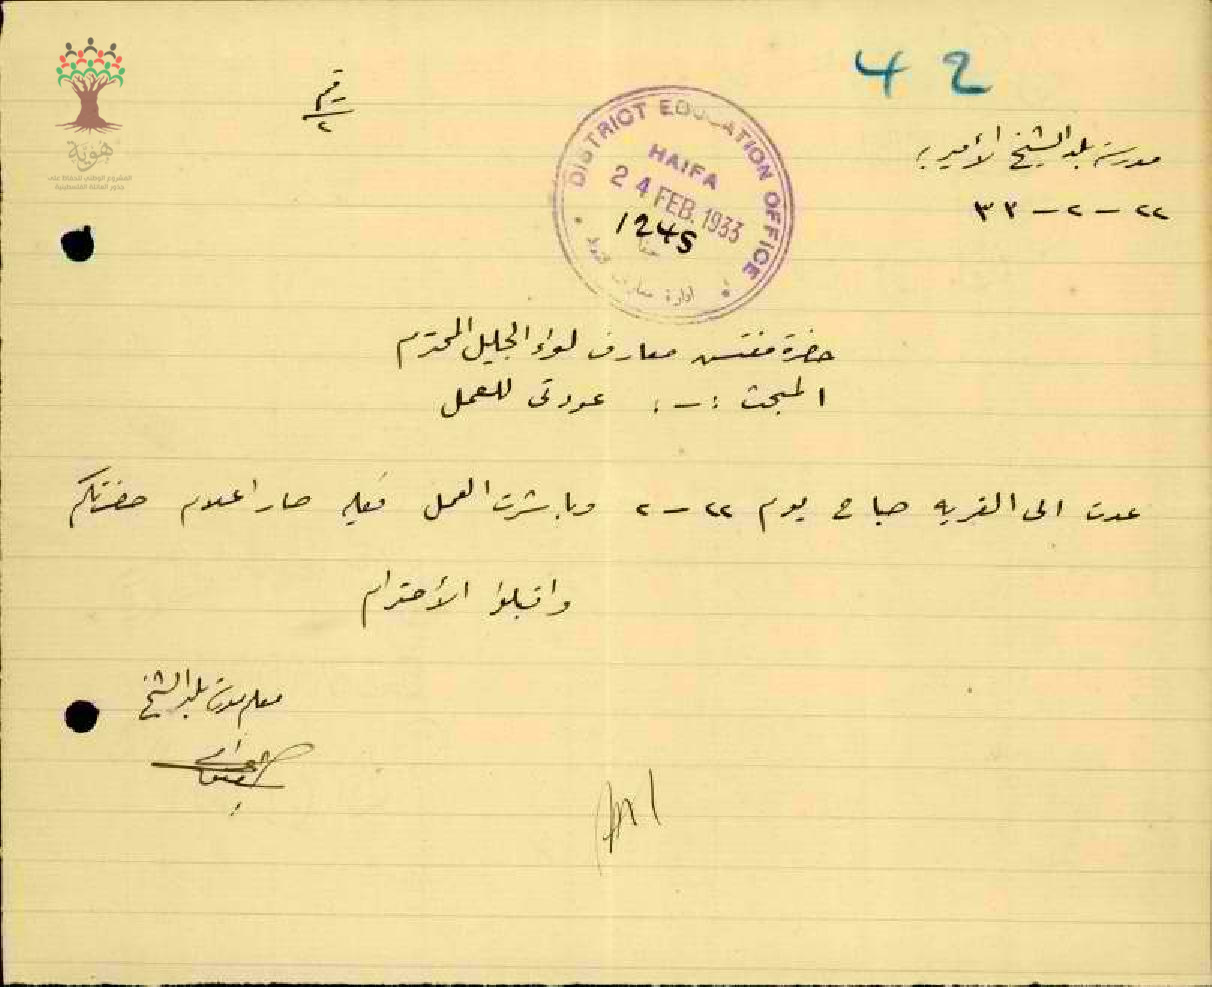 42
رقم
٢
مدرسة بلد الشيخ الأميرية
٢٢ – ٢ – ٣٣
DISTRICT EDUCATION OFFICE
HAIFA
24 FEB. 1933
1245
حيفا
ادارة معارف
هوية
المشروع الوطني للحفاظ على
جذور العائلة الفلسطينية
حضرة مفتش معارف لواء الجليل المحترم
المبحث :-: عودتي للعمل
عدت الى القريه صباح يوم ٢٢ – ٢ وباشرت العمل فعليه صار اعلام حضرتكم
واقبلوا الأحترام
معلم مدرسة بلد الشيخ